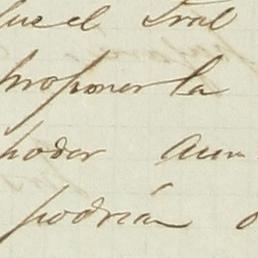 que el Gral
proponer la
poder aun
podrían